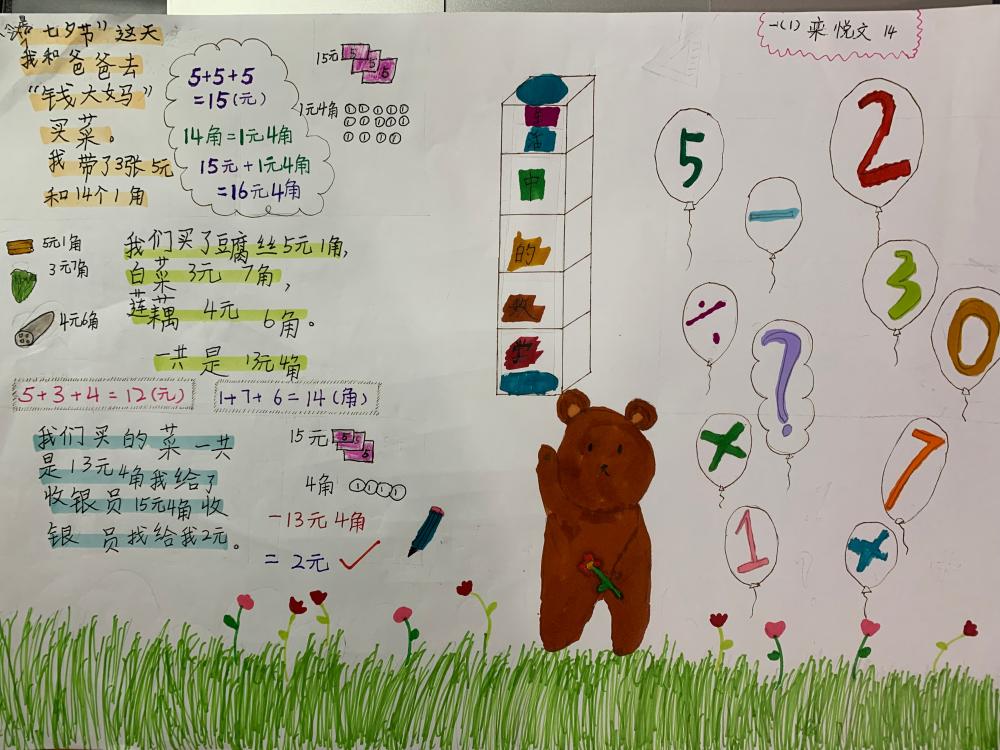 一(1) 栾悦文 14
今是"七夕节"这天
我和爸爸去
"钱大妈"
买菜。
我带了3张5元
和14个1角
5+5+5
=15(元)
14角=1元4角
15元+1元4角
=16元4角
15元
5
5
5
1元4角
1 1 1 1 1
1 1 1 1 1
1 1 1 1
5元1角
3元7角
4元6角
我们买了豆腐丝5元1角,
白菜 3元 7角,
莲藕 4元 6角。
一共是 13元4角
5+3+4=12(元)
1+7+6=14(角)
我们买的菜一共
是13元4角我给了
收银员15元4角收
银员找给我2元。
15元
5
5
5
4角
1 1 1 1
-13元4角
=2元 ✓
生
活
中
的
数
学
5
2
-
3
÷
0
?
×
7
1
+